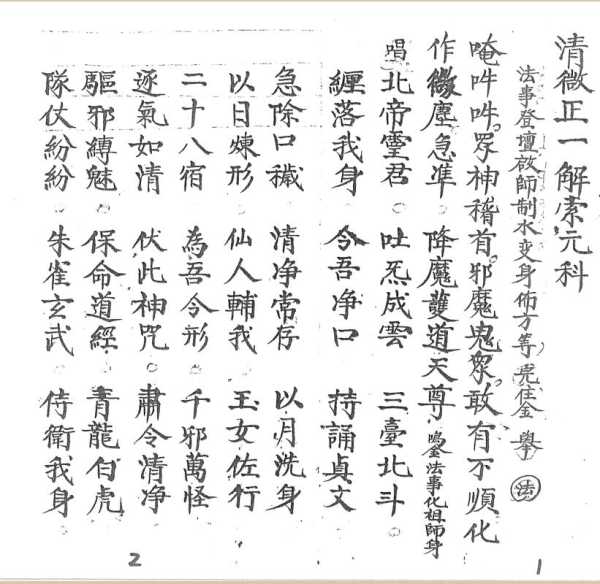 清微正一解索元科
法事登壇啟師制水变身佈方等完住金 舉 法
唵吽吽眾神稽首邪魔鬼眾敢有不順化
作微塵急準 降魔護道天尊 鳴金法事化祖師身
唱北帝靈君 吐炁成雲 三臺北斗
纒落我身 令吾净口 持誦貞文
急除口穢 清净常存 以月洗身
以日煉形 仙人輔我 玉女佐行
二十八宿 為吾令形 千邪萬怪
逐氣如清 伏此神咒 肅令清净
驅邪縛魅 保命道經 青龍白虎
隊仗紛紛 朱雀玄武 侍衛我身
2 1